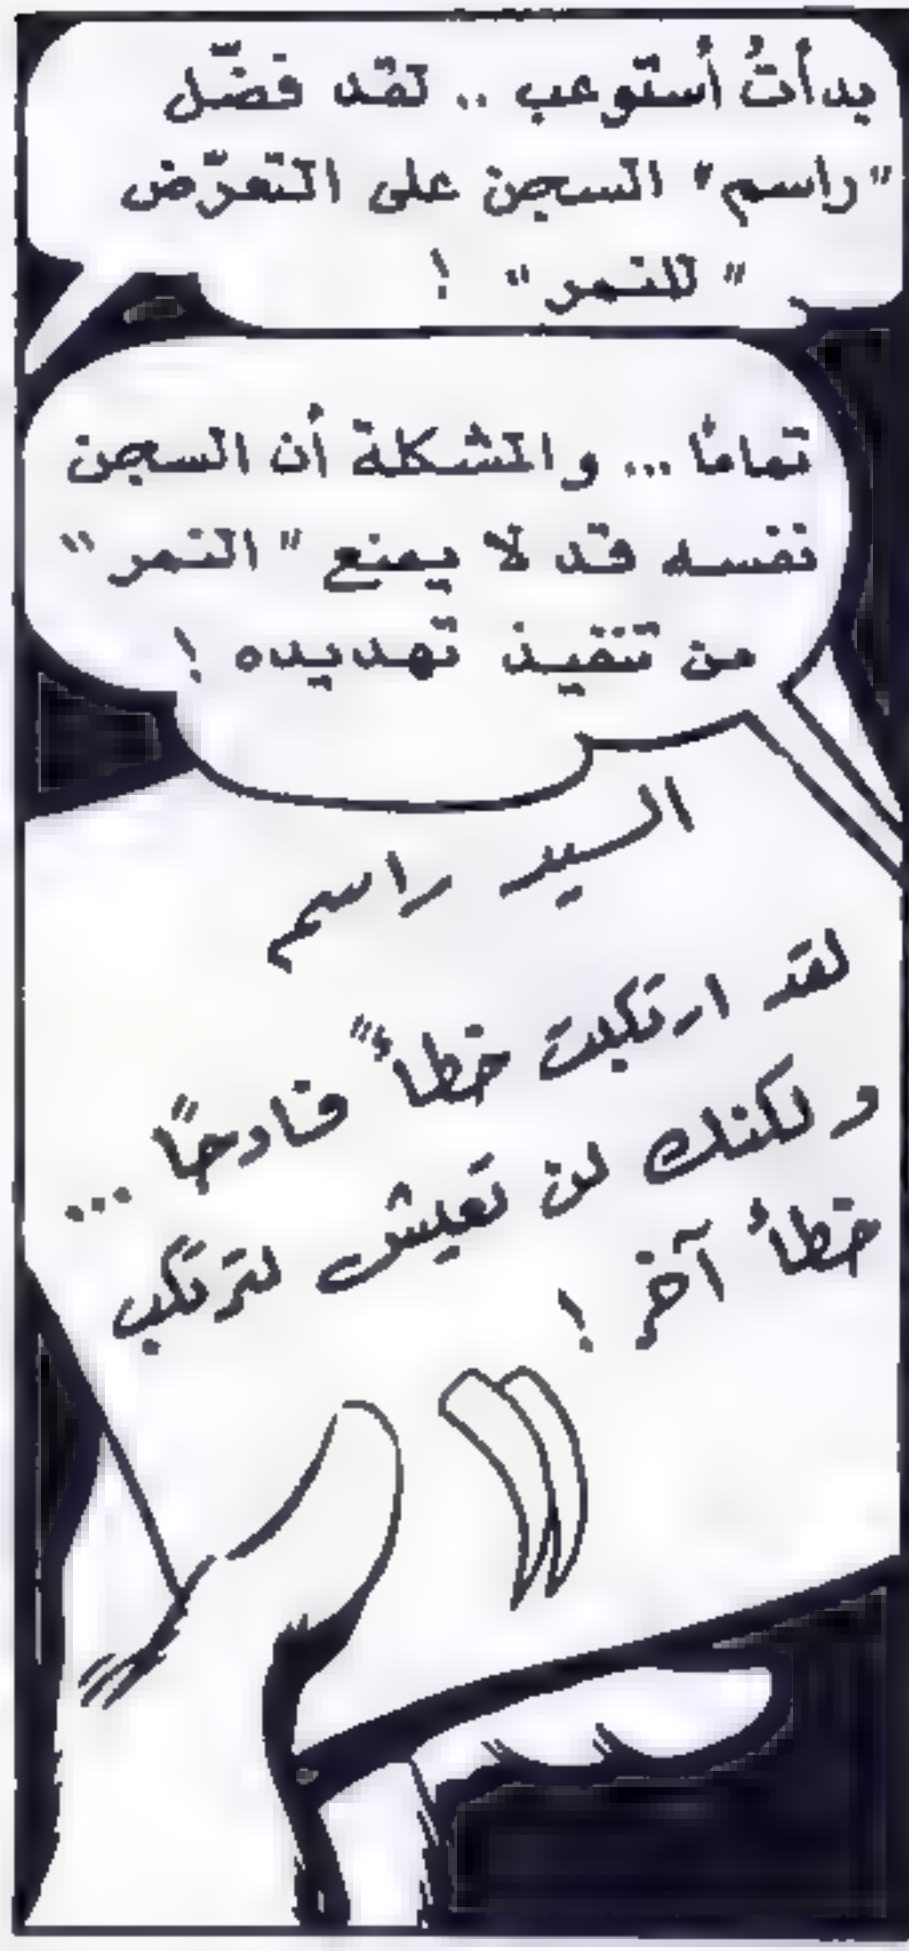 بدأتُ أستوعب .. لقد فضّل
"راسم" السجن على التعرّض
"للنمر" !
تمامًا ... والمشكلة أن السجن
نفسه قد لا يمنع "النمر"
من تنفيذ تهديده !
السيد راسم
لقد ارتكبت خطأً فادحًا ...
ولكنك لن تعيش لترتكب
خطأ آخر !